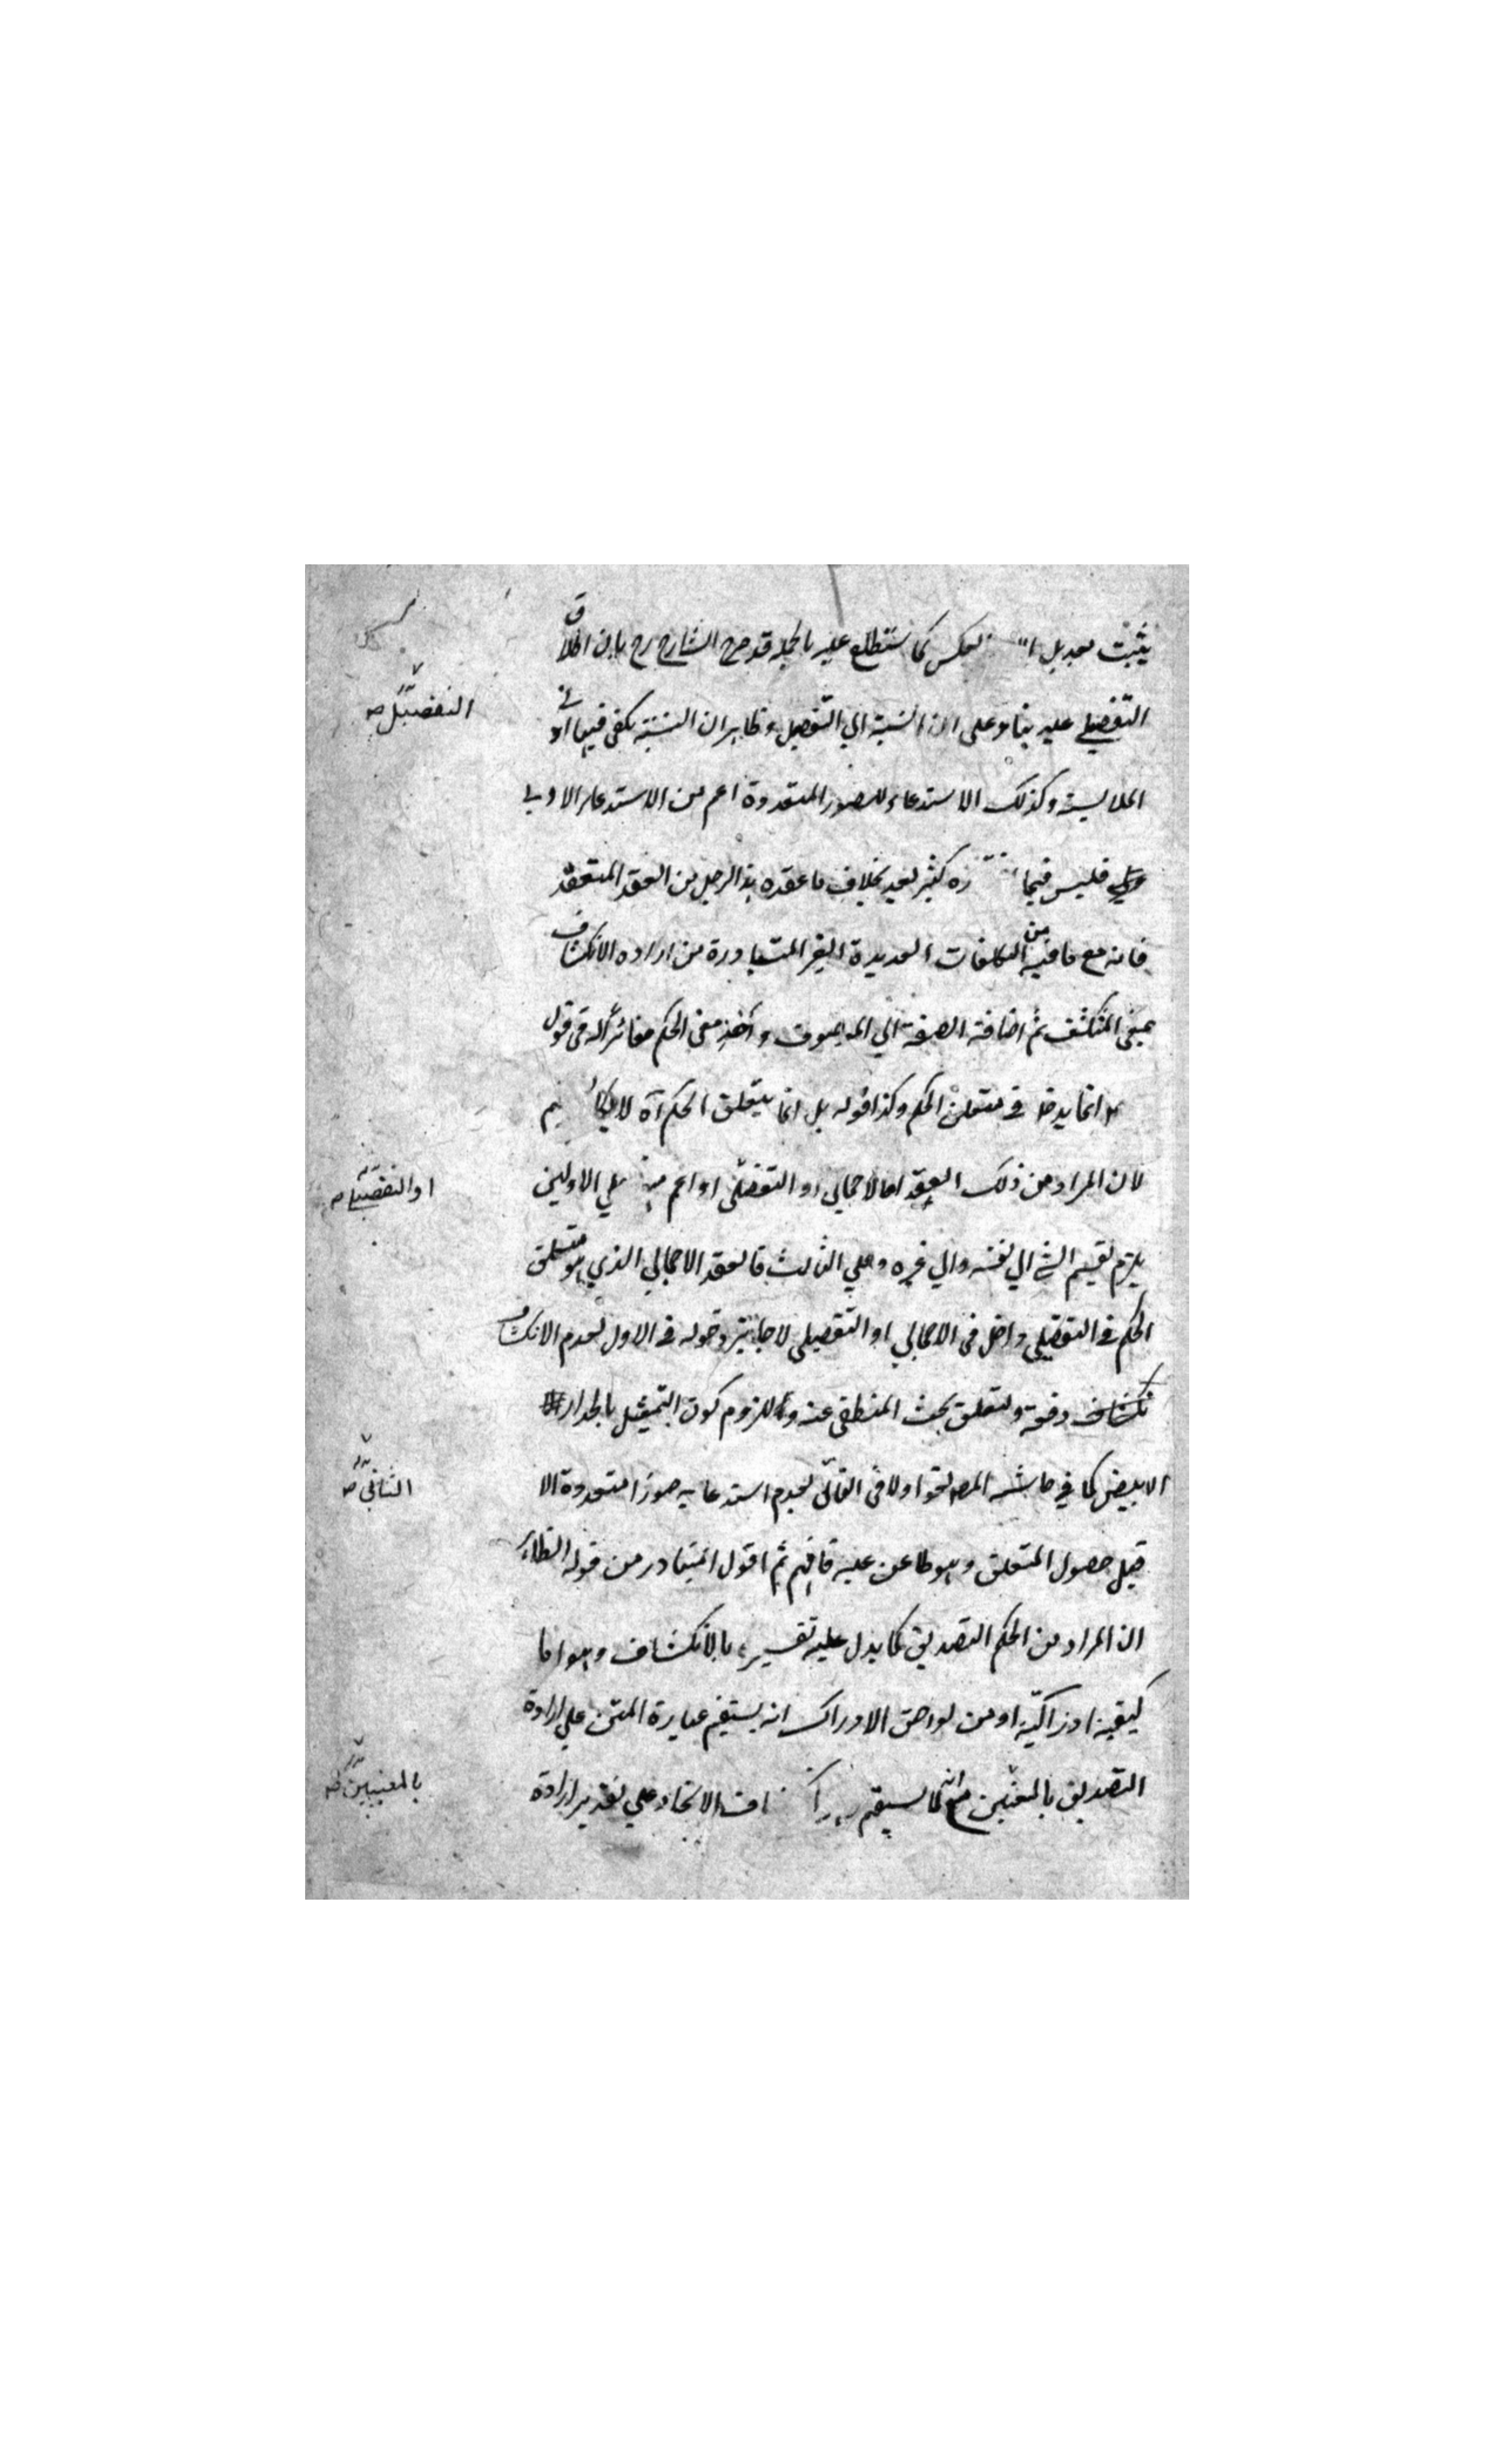 يثبت بعد بل العكس كما ستطلع عليه بالجملة قد صرح الشارح رح بان اطلاق
التفصيلي عليه بناء على ان النسبة الي التفصيل وظاهر ان النسبة يكفي فيها ادنى
الملابسة وكذلك الاستدعاء للصور المتعددة اعم من الاستدعاء الاولي
فليس فيما كثير بعد بخلاف ما عقده هذا الرجل من العقد المتعقد
فانه مع ما فيه من التكلفات العديدة الغير المتبادرة من اراده الانكشاف
بمعنى المنكشف ثم اضافة الصفة الي الموصوف واخذ معنى الحكم مغائرا له في قوله
انما يدخل في متعلق الحكم وكذا قوله بل انما يتعلق الحكم آه لا يكاد يتم
لان المراد من ذلك العقد اما الاجمالي او التفصيلي او اعم منه علي الاولين
يلزم تقسيم الشي الي نفسه والي غيره وعلي الثالث فالعقد الاجمالي الذي هو متعلق
الحكم في التفصيلي داخل في الاجمالي او التفصيلي لا جائز دخوله في الاول لعدم الانكشاف
دفعة ولتعلق بحث المنطقي عنه وللزوم كون التمثيل بالجدار
الابيض كما في حاشية المصـ لغوا ولا في الثاني لعدم استدعايه صورا متعددة الا
قبل حصول المتعلق وهو طاعن عليه فافهم ثم اقول المتبادر من قوله الظاهر
ان المراد من الحكم التصديق كما يدل عليه تفسيره بالانكشاف وهو اما
كيفية ادراكية او من لواحق الادراك انه يستقيم عبارة المتن علي ارادة
التصديق بالمعنيين مع انه كما يستقيم الاتحاد علي تقدير ارادة
التفصيل صـ
او التفصيلي صـ
الثاني صـ
بالمعنيين صـ